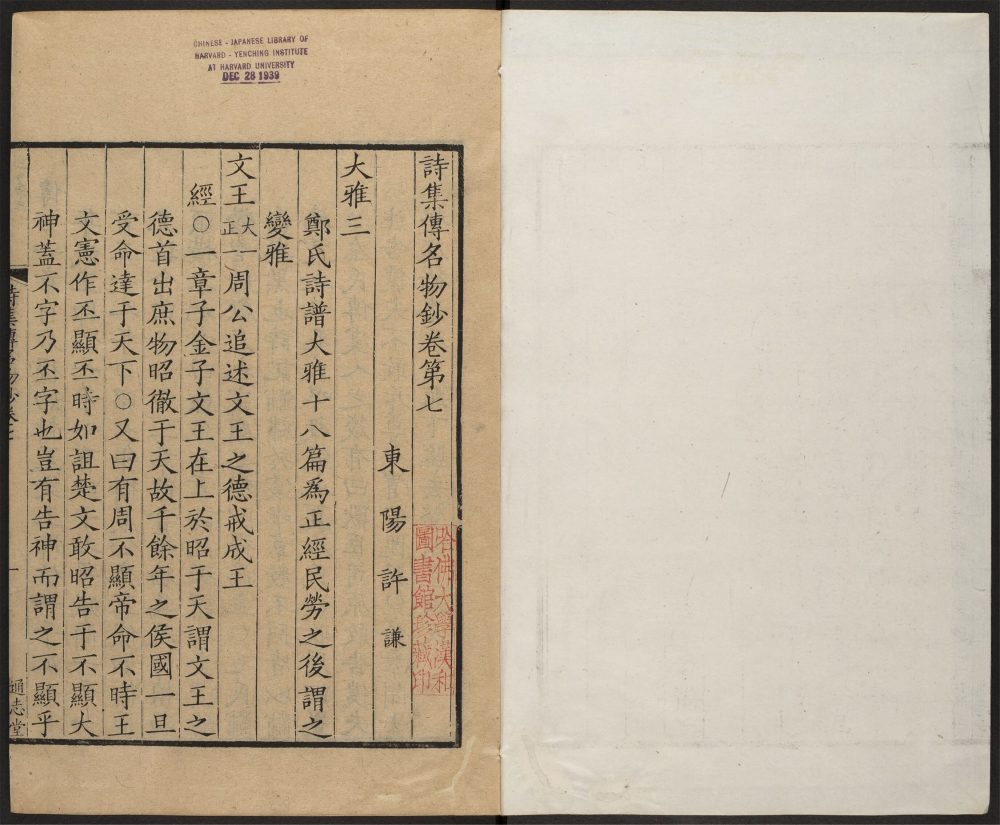 CHINESE - JAPANESE LIBRARY OF
HARVARD - YENCHING INSTITUTE
AT HARVARD UNIVERSITY
DEC 28 1939
詩集傳名物鈔卷第七
東陽許謙
哈佛大學漢和
圖書館珍藏印
大雅三
鄭氏詩譜大雅十八篇爲正經民勞之後謂之
變雅
文王大正一周公追述文王之德戒成王
經○一章子金子文王在上於昭于天謂文王之
德首出庶物昭徹于天故千餘年之侯國一旦
受命達于天下○又曰有周不顯帝命不時王
文憲作丕顯丕時如詛楚文敢昭告于不顯大
神蓋不字乃丕字也豈有告神而謂之不顯乎
詩集傳名物鈔卷七
一
通志堂